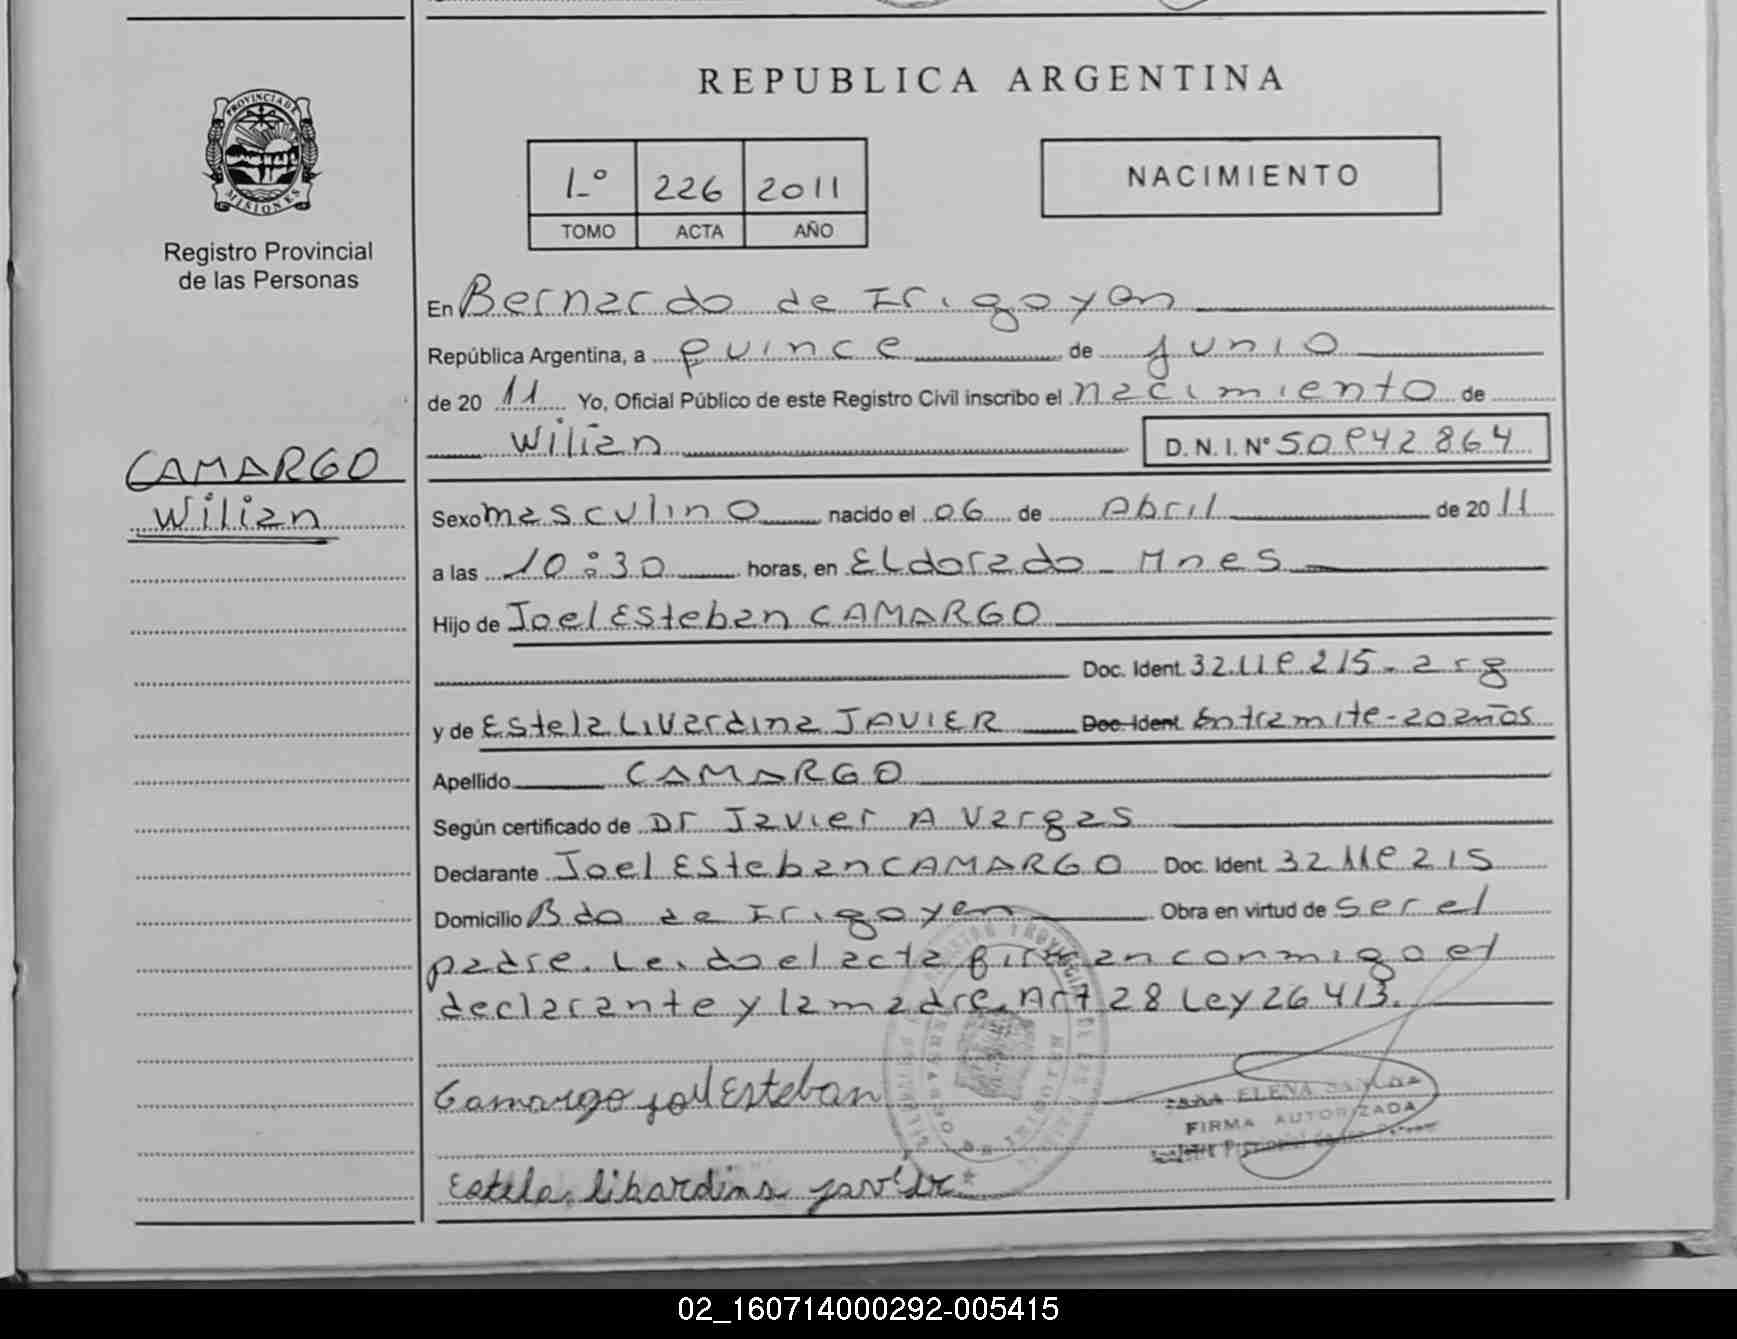 REPUBLICA ARGENTINA
PROVINCIA DE
MISIONES
1º 226 2011
TOMO ACTA AÑO
NACIMIENTO
Registro Provincial
de las Personas
En Bernardo de Irigoyen
República Argentina, a quince de junio
de 2011 Yo, Oficial Público de este Registro Civil inscribo el nacimiento de
Wilian D.N.I.Nº
CAMARGO
Wilian
Sexo masculino nacido el 06 de Abril de 2011
a las 10:30 horas, en Eldorado - Mnes
Hijo de Joel Esteban CAMARGO
Doc. Ident. arg
y de Estela Liverdina JAVIER Doc. Ident. En tramite - 20 años
Apellido CAMARGO
Según certificado de Dr Javier A Vargas
Declarante Joel Esteban CAMARGO Doc. Ident.
Domicilio Bdo de Irigoyen Obra en virtud de ser el
padre. Leido el acta firman conmigo el
declarante y la madre. Art 28 Ley 26413.
Camargo joel Esteban
ELENA
FIRMA AUTORIZADA
Estela libardina javier
02_160714000292-005415